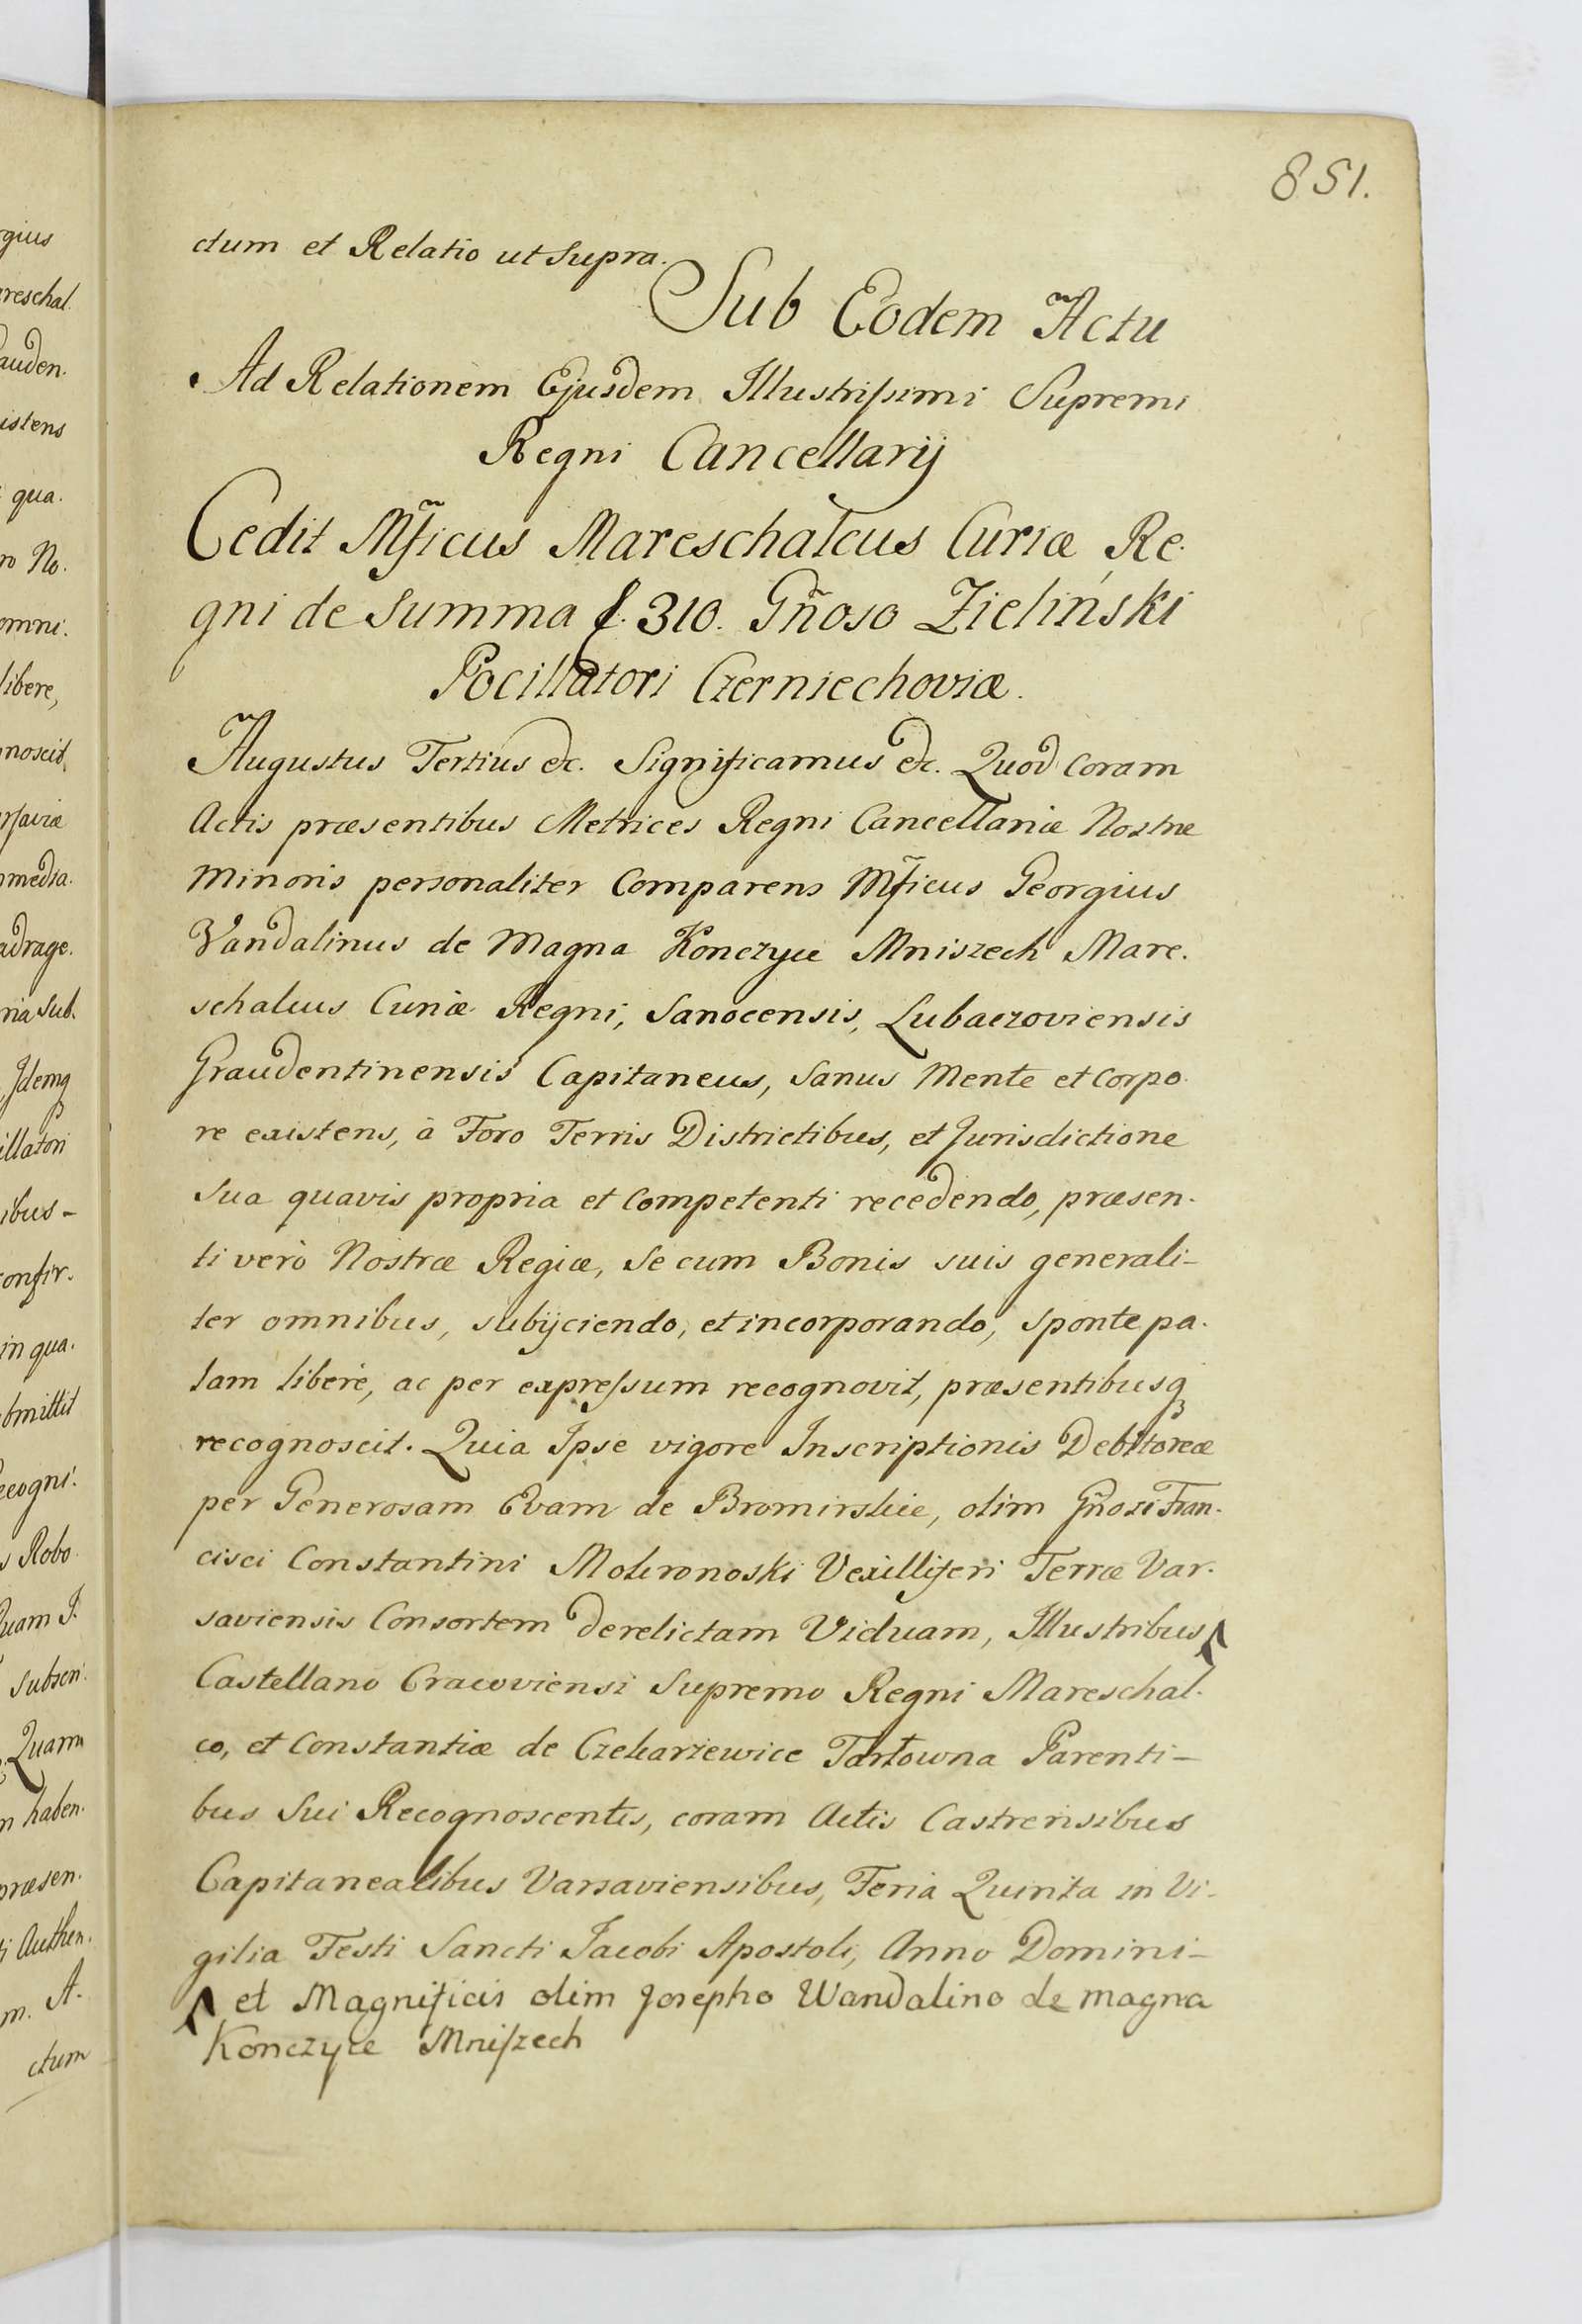 851.
ctum et Relatio ut supra.
Sub Eodem Actu
Ad Relationem Ejusdem Illustrissimi Supremi
Regni Cancellarij
Cedit Mficus Mareschalcus Curiæ Re-
gni de Summa f. 310. Gñoso Zieliński
Pocillatori Czerniechoviæ.
Augustus Tertius etc. Significamus etc. Quod coram
Actis præsentibus Metrices Regni Cancellariæ Nostræ
Minoris personaliter Comparens Mficus Georgius
Vandalinus de Magna Konczyce Mniszech Mare-
schalcus Curiæ Regni, Sanocensis, Lubaczoviensis
Graudentinensis Capitaneus, Sanus Mente et Corpo-
re existens, à Foro Terris Districtibus, et Jurisdictione
Sua quavis propria et Competenti recedendo, præsen-
ti verò Nostræ Regiæ, Se cum Bonis suis generali-
ter omnibus, subijciendo, et incorporando, sponte pa-
lam liberè, ac per expressum recognovit, præsentibusq
recognoscit. Quia Ipse vigore Inscriptionis Debitoreæ
per Generosam Evam de Bromirskie, olim Gñosi Fran-
cisci Constantini Mokronoski Vexilliferi Terræ Var-
saviensis Consortem derelictam Viduam, Illustribus
Castellano Cracoviensi Supremo Regni Mareschal-
co, et Constantiæ de Czekarzewice Tarłowna Parenti-
bus Sui Recognoscentis, coram Actis Castrensibus
Capitanealibus Varsaviensibus, Feria Quinta in Vi-
gilia Festi Sancti Jacobi Apostoli, Anno Domini-
et Magnificis olim Josepho Wandalino de magna
Konczyce Mniszech
gius
reschal.
auden.
istens
qua.
ro No.
omni.
libere,
noscit,
media.
adrage.
ria Sub.
Idemq
illatori
ibus-
onfir.
in qua.
bmittit
ecogni.
Robo.
uam I.
subscri.
Quam
haben.
præsen.
Authen.
m. A.
ctum